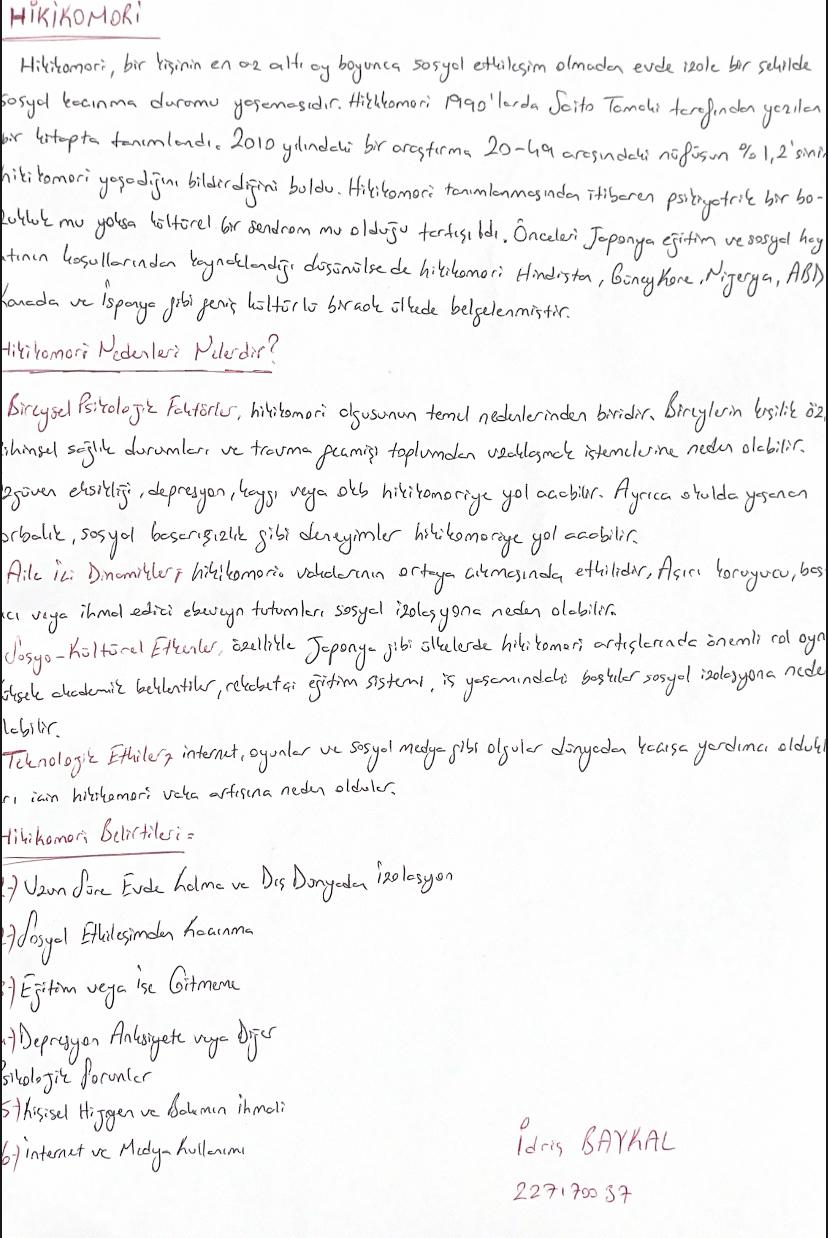 HİKİKOMORİ
Hikikomori, bir kişinin en az altı ay boyunca sosyal etkileşim olmadan evde izole bir şekilde
sosyal kaçınma durumu yaşamasıdır. Hikikomori 1990'larda Saito Tamaki tarafından yazılan
bir kitapta tanımlandı. 2010 yılındaki bir araştırma 20-49 arasındaki nüfusun %1,2'sini
hikikomori yaşadığını bildirdiğini buldu. Hikikomori tanımlanmasından itibaren psikiyatrik bir bo-
zukluk mu yoksa kültürel bir sendrom mu olduğu tartışıldı. Önceleri Japonya eğitim ve sosyal hay
atının koşullarından kaynaklandığı düşünülse de hikikomori Hindista, Güney Kore, Nijerya, ABD
Kanada ve İspanya gibi geniş kültürlü birçok ülkede belgelenmiştir.
Hikikomori Nedenleri Nelerdir?
Bireysel Psikolojik Faktörler, hikikomori olgusunun temel nedenlerinden biridir. Bireylerin kişilik öz
ihinsel sağlık durumları ve travma geçmişi toplumdan uzaklaşmak istemelerine neden olabilir.
zgüven eksikliği, depresyon, kaygı veya okb hikikomoriye yol açabilir. Ayrıca okulda yaşanan
orbalık, sosyal başarısızlık gibi deneyimler hikikomoriye yol açabilir.
Aile İçi Dinamikler; hikikomori vakalarının ortaya çıkmasında etkilidir, Aşırı koruyucu, bas
ıcı veya ihmal edici ebeveyn tutumları sosyal izolasyona neden olabilir.
Sosyo-Kültürel Etkenler, özellikle Japonya gibi ülkelerde hikikomori artışlarında önemli rol oyn
üksek akademik beklentiler, rekabetçi eğitim sistemi, iş yaşamındaki baskılar sosyal izolasyona nede
labilir.
Teknolojik Etkiler; internet, oyunlar ve sosyal medya gibi olgular dünyadan kaçışa yardımcı oldukl
rı için hikikomori vaka artışına neden oldular.
Hikikomori Belirtileri:
1-) Uzun Süre Evde kalma ve Dış Dünyadan İzolasyon
2-) Sosyal Etkileşimden Kaçınma
3-) Eğitim veya İşe Gitmeme
4-) Depresyon Anksiyete veya Diğer
Psikolojik Sorunlar
5-) Kişisel Hijyen ve Bakımın ihmali
6-) internet ve Medya Kullanımı
İdris BAYKAL
227170037